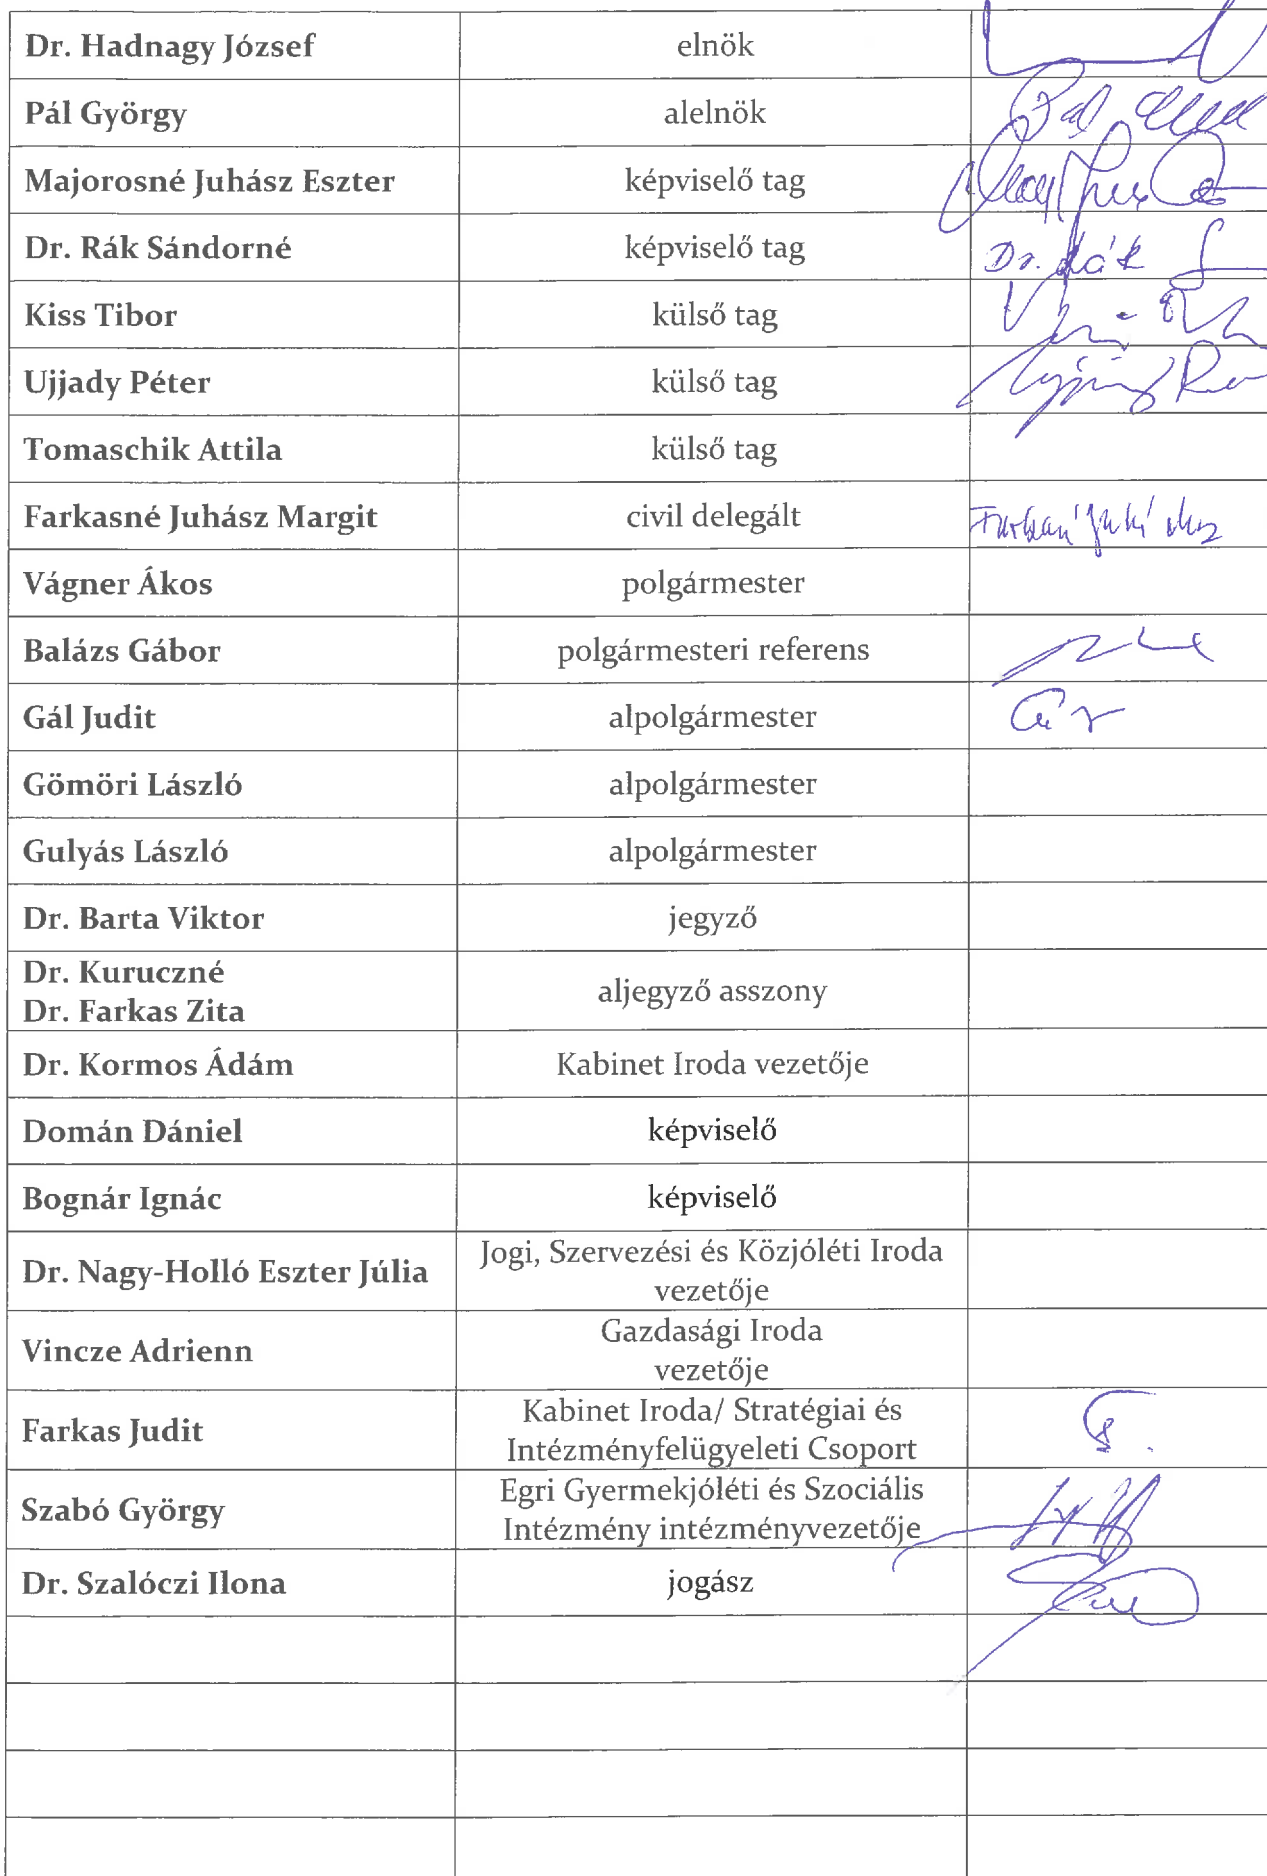 Dr. Hadnagy József elnök
Pál György alelnök
Majorosné Juhász Eszter képviselő tag
Dr. Rák Sándorné képviselő tag Dr. Rák
Kiss Tibor külső tag
Ujjady Péter külső tag
Tomaschik Attila külső tag
Farkasné Juhász Margit civil delegált
Vágner Ákos polgármester
Balázs Gábor polgármesteri referens
Gál Judit alpolgármester
Gömöri László alpolgármester
Gulyás László alpolgármester
Dr. Barta Viktor jegyző
Dr. Kuruczné
Dr. Farkas Zita aljegyző asszony
Dr. Kormos Ádám Kabinet Iroda vezetője
Domán Dániel képviselő
Bognár Ignác képviselő
Dr. Nagy-Holló Eszter Júlia Jogi, Szervezési és Közjóléti Iroda
vezetője
Vincze Adrienn Gazdasági Iroda
vezetője
Farkas Judit Kabinet Iroda/ Stratégiai és
Intézményfelügyeleti Csoport
Szabó György Egri Gyermekjóléti és Szociális
Intézmény intézményvezetője
Dr. Szalóczi Ilona jogász